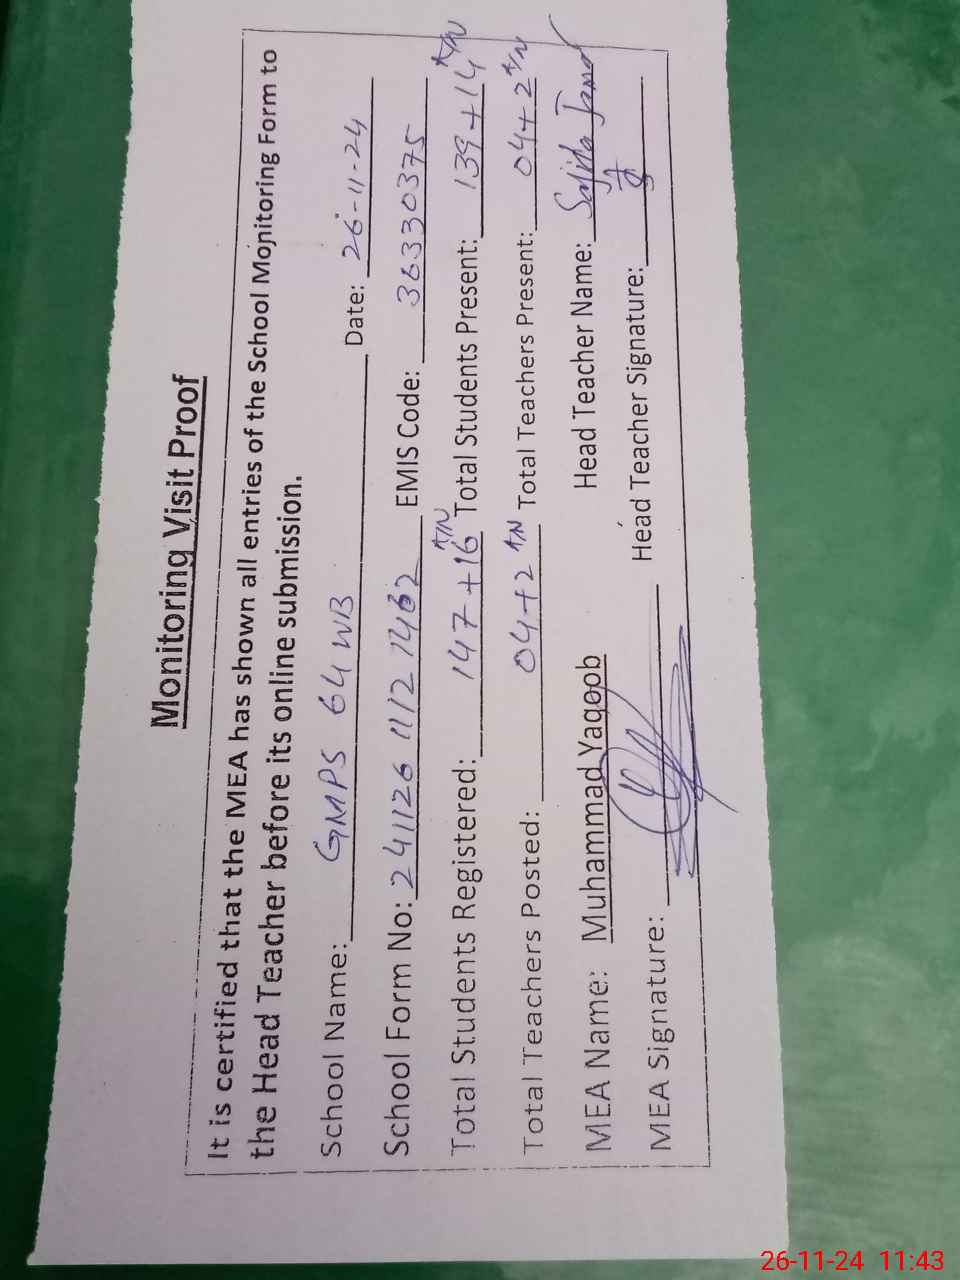 Monitoring Visit Proof
It is certified that the MEA has shown all entries of the School Monitoring Form to
the Head Teacher before its online submission.
School Name: GMPS 64 WB Date: 26-11-24
School Form No: 241126 1112 7462 EMIS Code: 36330375
Total Students Registered: 147+16 Total Students Present: 139+14
Total Teachers Posted: 04+2 Total Teachers Present: 04+2
MEA Name: Muhammad Yaqoob Head Teacher Name: Sajida
MEA Signature: Head Teacher Signature:
26-11-24 11:43